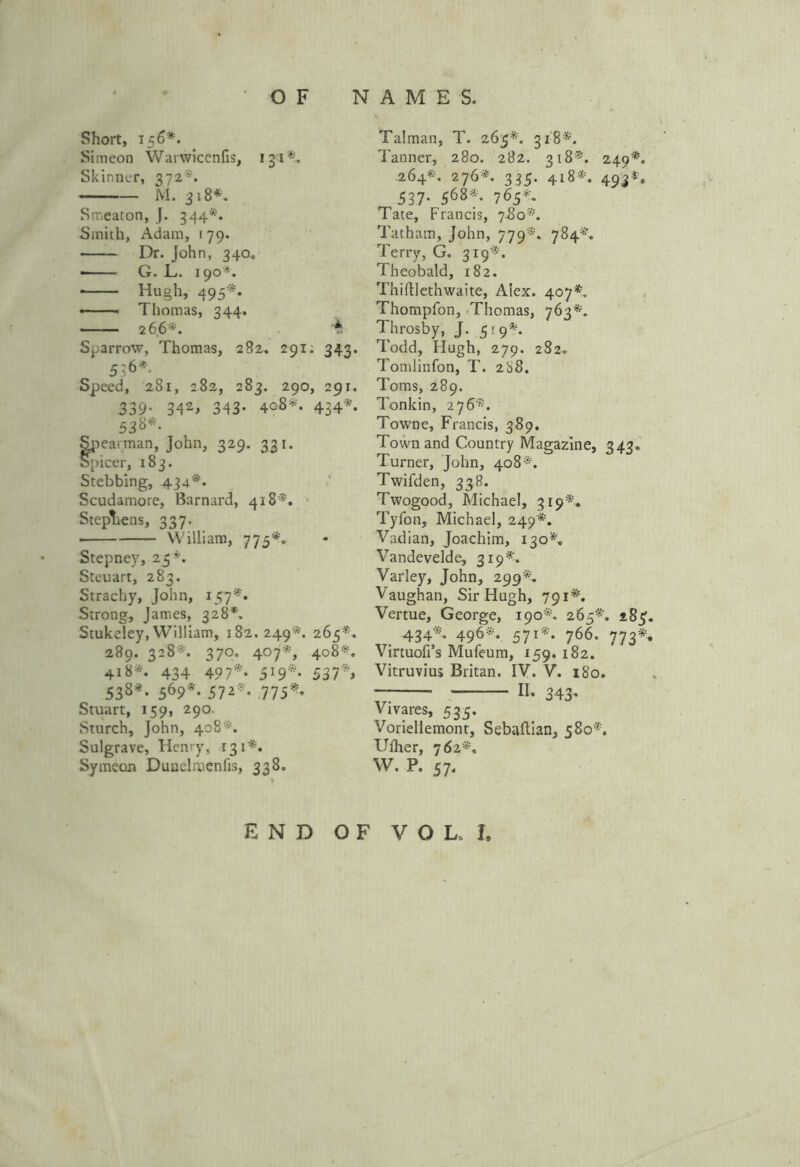 OF NAMES.
Short, 156*.
Simeon Warwicenſis, 131*.
Skinner, 372*.
——— M. 318*.
Smeaton, J. 344*.
Smith, Adam, 179.
—— Dr. John, 340.
—— G. L. 190*.
—— Hugh, 495*.
—— Thomas, 344.
—— 266*.
Sparrow, Thomas, 282. 291. 343.
536*.
Speed, 281, 282, 283. 290, 291.
339. 342, 343. 408*. 434*.
538*.
Spearman, John, 329. 331.
Spicer, 183.
Stebbing, 434*.
Scudamore, Barnard, 418*.
Stephens, 337.
——— William, 775*.
Stepney, 25*.
Steuart, 283.
Strachy, John, 157*.
Strong, James, 328*.
Stukeley, William, 182. 249*. 265*.
289. 328*. 370. 407*, 408*.
418*. 434 497*. 519*. 537*,
538*. 569*. 572*. 775*.
Stuart, 159, 290.
Sturch, John, 408*.
Sulgrave, Henry, 131*.
Symeon Dunelmenſis, 338.
Talman, T. 265*. 318*.
Tanner, 280. 282. 318*. 249*.
264*. 276*. 335. 418*. 493*.
537. 568*. 765*.
Tate, Francis, 780*.
Tatham, John, 779*. 784*.
Terry, G. 319*.
Theobald, 182.
Thiſtlethwaite, Alex. 407*.
Thompſon, Thomas, 763*.
Throsby, J. 519*.
Todd, Hugh, 279. 282.
Tomlinſon, T. 288.
Toms, 289.
Tonkin, 276*.
Towne, Francis, 389.
Town and Country Magazine, 343.
Turner, John, 408*.
Twiſden, 338.
Twogood, Michael, 319*.
Tyſon, Michael, 249*.
Vadian, Joachim, 130*.
Vandevelde, 319*.
Varley, John, 299*.
Vaughan, Sir Hugh, 791*.
Vertue, George, 190*. 265*. 285.
434*. 496*. 571*. 766. 773*.
Virtuoſi's Muſeum, 159. 182.
Vitruvius Britan. IV. V. 180.
——— ——— II. 343.
Vivares, 535.
Voriellemont, Sebaſtian, 580*.
Uſher, 762*.
W. P. 57.
END OF VOL. I.